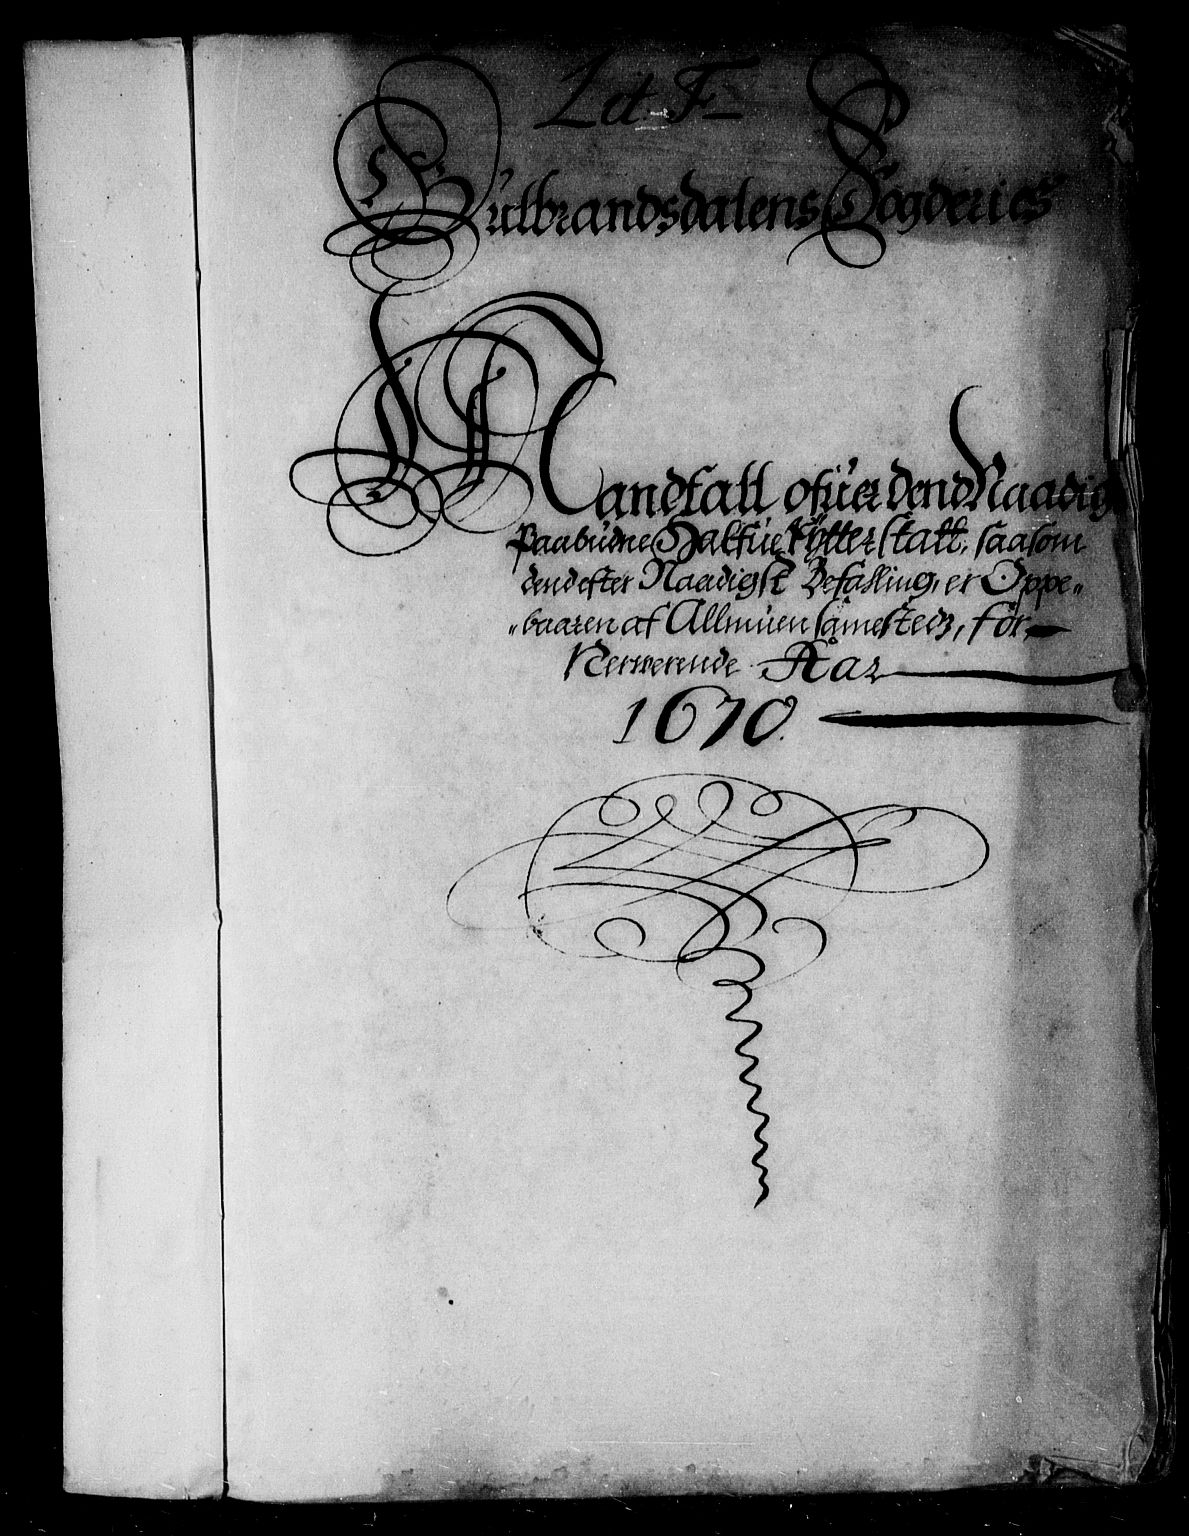 Lit. F
Gulbrandsdalens Fogderies
Mandtall ofuer dend Naadig
Paabudne Halfue Rytter skatt, saasom
dend efter Naadigst Befalling, er Oppe„
„baaren af Allmuen samesteds, for
Nerwerende Aar
1670.